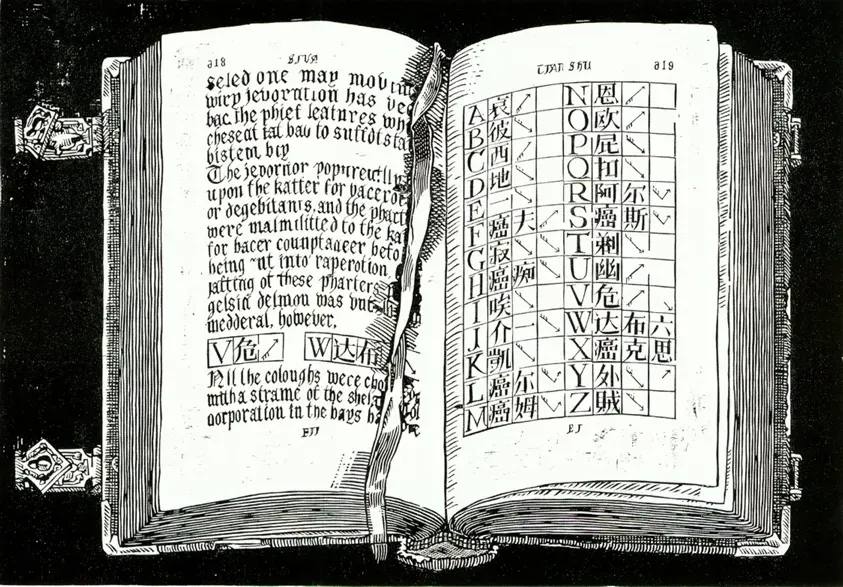 a18
seled one may movin
wiry jevoration has ve
bac the phiet leatures wh
cheseat tat bau to
bistem,
The jevornor
upon the katter for
or degebitants, and the phact
were malmititted to the ka
for bacer counptaceer befo
being ~ut into raperotion
jatting of these pharters
gelsia delmon was vut
medderal, however,
V危↗ W达布
All the coloughs were cho
with a strame of the shel
aorporation in the bays ha
TIAN SHU a19
A 哀 ↙
B 彼 ↙
C 西 ↙
D 地 ↘
E 一 ↘
F 癌 夫 ↙
G 寂 ↘
H 癌 痴 ↘
I 唉 ↘
J 介 一 ↘
K 凯 ↘
L 癌 尔
M 癌 姆
N 恩 ↙
O 欧 ↙
P 屁 ↘
Q 扣 ↘
R 阿 尔
S 癌 斯
T 剃 ↘
U 幽 ↗
V 危 ↗
W 达 布 六
X 癌 克 思
Y 外 ↘
Z 贼 ↘